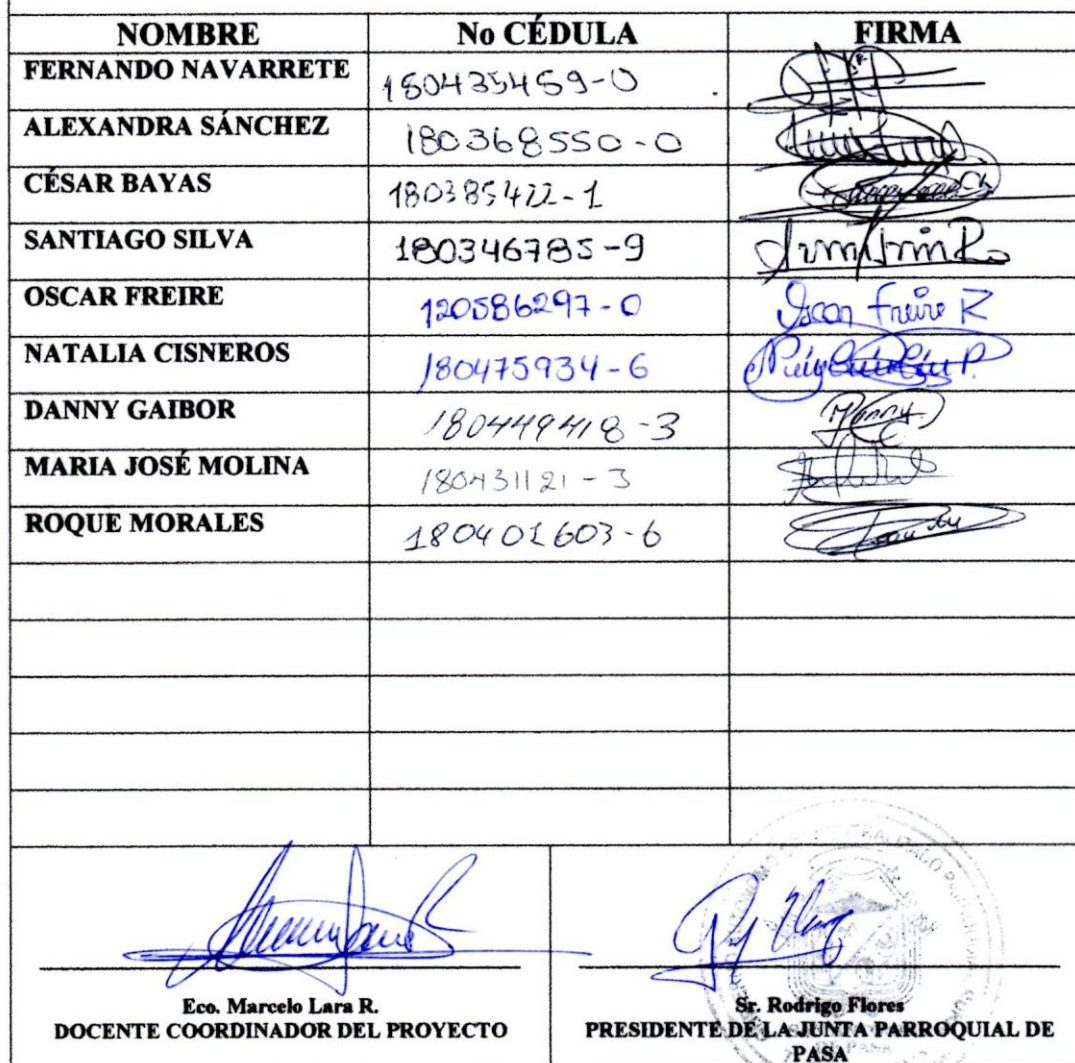 NOMBRE No CÉDULA FIRMA
FERNANDO NAVARRETE 180435459-0
ALEXANDRA SÁNCHEZ 180368550-0
CÉSAR BAYAS 180385422-1
SANTIAGO SILVA 180346785-9
OSCAR FREIRE 120586297-0 Oscar Freire R
NATALIA CISNEROS 180475934-6
DANNY GAIBOR 180449418-3 Danny
MARIA JOSÉ MOLINA 180431121-3
ROQUE MORALES 180401603-6
Eco. Marcelo Lara R.
DOCENTE COORDINADOR DEL PROYECTO
Sr. Rodrigo Flores
PRESIDENTE DE LA JUNTA PARROQUIAL DE
PASA